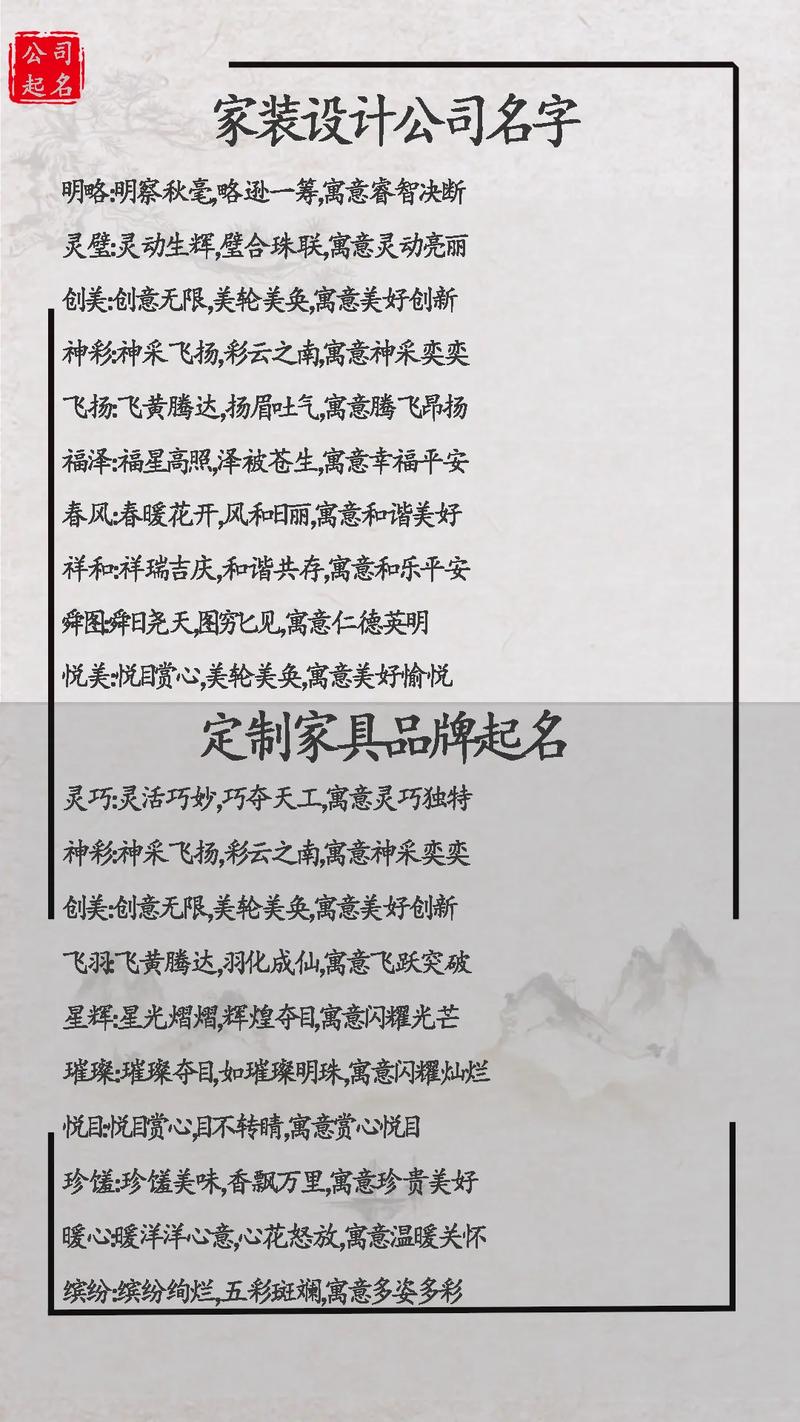 公司
起名
家装设计公司名字
明略:明察秋毫,略逊一筹,寓意睿智决断
灵璧:灵动生辉,璧合珠联,寓意灵动亮丽
创美:创意无限,美轮美奂,寓意美好创新
神彩:神采飞扬,彩云之南,寓意神采奕奕
飞扬:飞黄腾达,扬眉吐气,寓意腾飞昂扬
福泽:福星高照,泽被苍生,寓意幸福平安
春风:春暖花开,风和日丽,寓意和谐美好
祥和:祥瑞吉庆,和谐共存,寓意和乐平安
舜图:舜日尧天,图穷匕见,寓意仁德英明
悦美:悦目赏心,美轮美奂,寓意美好愉悦
定制家具品牌起名
灵巧:灵活巧妙,巧夺天工,寓意灵巧独特
神彩:神采飞扬,彩云之南,寓意神采奕奕
创美:创意无限,美轮美奂,寓意美好创新
飞羽:飞黄腾达,羽化成仙,寓意飞跃突破
星辉:星光熠熠,辉煌夺目,寓意闪耀光芒
璀璨:璀璨夺目,如璀璨明珠,寓意闪耀灿烂
悦目:悦目赏心,目不转睛,寓意赏心悦目
珍馐:珍馐美味,香飘万里,寓意珍贵美好
暖心:暖洋洋心意,心花怒放,寓意温暖关怀
缤纷:缤纷绚烂,五彩斑斓,寓意多姿多彩